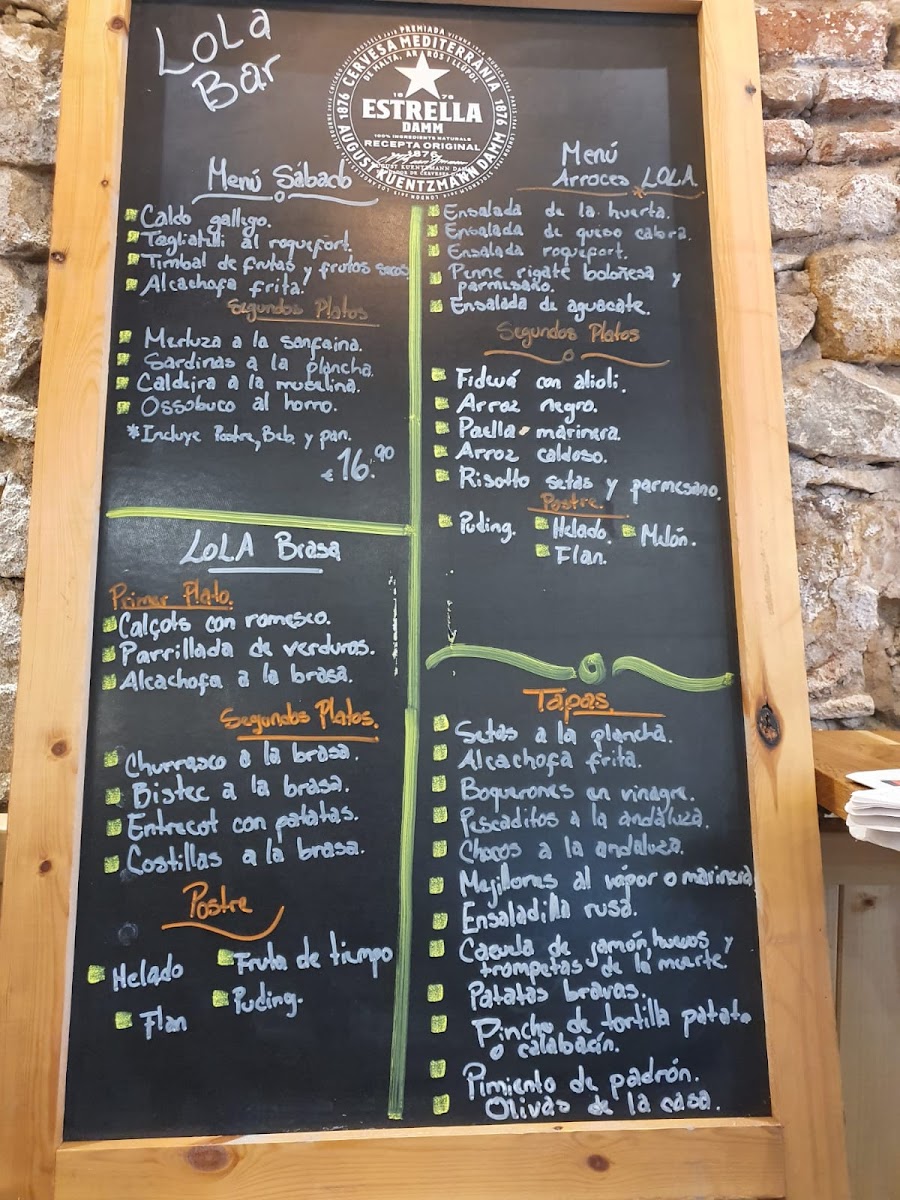 LOLA
Bar
PREMIADA
CERVESA MEDITERRÀNIA
DE MALTA, ARRÒS I LLÚPOL
1876
1876
1876
ESTRELLA
DAMM
100% INGREDIENTS NATURALS
RECEPTA ORIGINAL
1876
AUGUST KUENTZMANN DAMM
Menú Sábado
Caldo gallego.
Tagliatelli al roquefort.
Timbal de frutas y frutos secos
Alcachofa frita.
Segundos Platos
Merluza a la sanfaina.
Sardinas a la plancha.
Caldeira a la muselina.
Ossobuco al horno.
*Incluye Postre, Beb. y pan.
€16.90
LOLA Brasa
Primer Plato.
Calçots con romesco.
Parrillada de verduras.
Alcachofa a la brasa.
Segundos Platos.
Churrasco a la brasa.
Bistec a la brasa.
Entrecot con patatas.
Costillas a la brasa.
Postre
Helado
Fruta de tiempo
Flan
Puding.
Menú
Arroces LOLA
Ensalada de la huerta.
Ensalada de queso cabra.
Ensalada roquefort.
Penne rigate boloñesa y
parmesano.
Ensalada de aguacate.
Segundos Platos
Fideuá con alioli.
Arroz negro.
Paella marinera
Arroz caldoso.
Risotto setas y parmesano.
Postre.
Puding.
Helado.
Melón.
Flan.
Tapas
Setas a la plancha.
Alcachofa frita.
Boquerones en vinagre.
Pescaditos a la andaluza.
Chocos a la andaluza.
Mejillones al vapor o marinera
Ensaladilla rusa.
Casuela de jamón, huevos y
trompetas de la muerte
Patatas bravas.
Pincho de tortilla patata
o calabacín.
Pimiento de padrón.
Olivas de la casa.